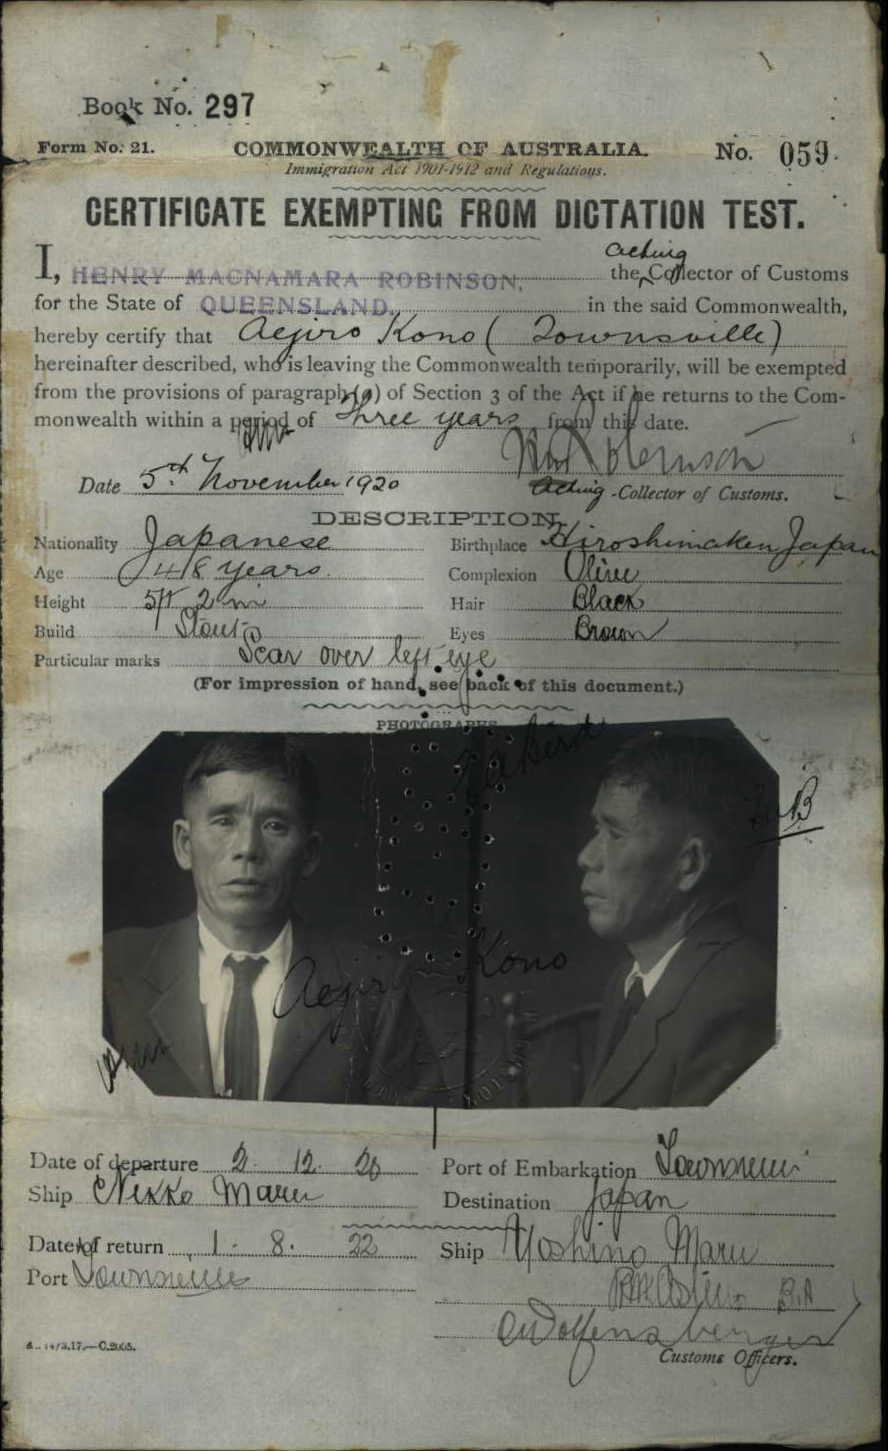 Book No. 297
Form No. 21. COMMONWEALTH OF AUSTRALIA. No. 059.
Immigration Act 1901-1912 and Regulations.
CERTIFICATE EXEMPTING FROM DICTATION TEST.
Acting
I, HENRY MACNAMARA ROBINSON, the Collector of Customs
for the State of QUEENSLAND. in the said Commonwealth,
hereby certify that Aejiro Kono (Townsville)
hereinafter described, who is leaving the Commonwealth temporarily, will be exempted
from the provisions of paragraph (a) of Section 3 of the Act if he returns to the Com-
monwealth within a period of Three years from this date.
Robinson
Date 5th November 1920 Acting Collector of Customs.
DESCRIPTION.
Nationality Japanese Birthplace Hiroshimaken Japan
Age 48 years. Complexion Olive
Height 5ft 2 in Hair Black
Build Stout Eyes Brown
Particular marks Scar over left eye
(For impression of hand, see back of this document.)
PHOTOGRAPHS
Aejiro Kono
Date of departure 2. 12. 20 Port of Embarkation Townsville
Ship Nikko Maru Destination Japan
Date of return 1. 8. 22 Ship Yoshino Maru
Port Townsville
Customs Officers.